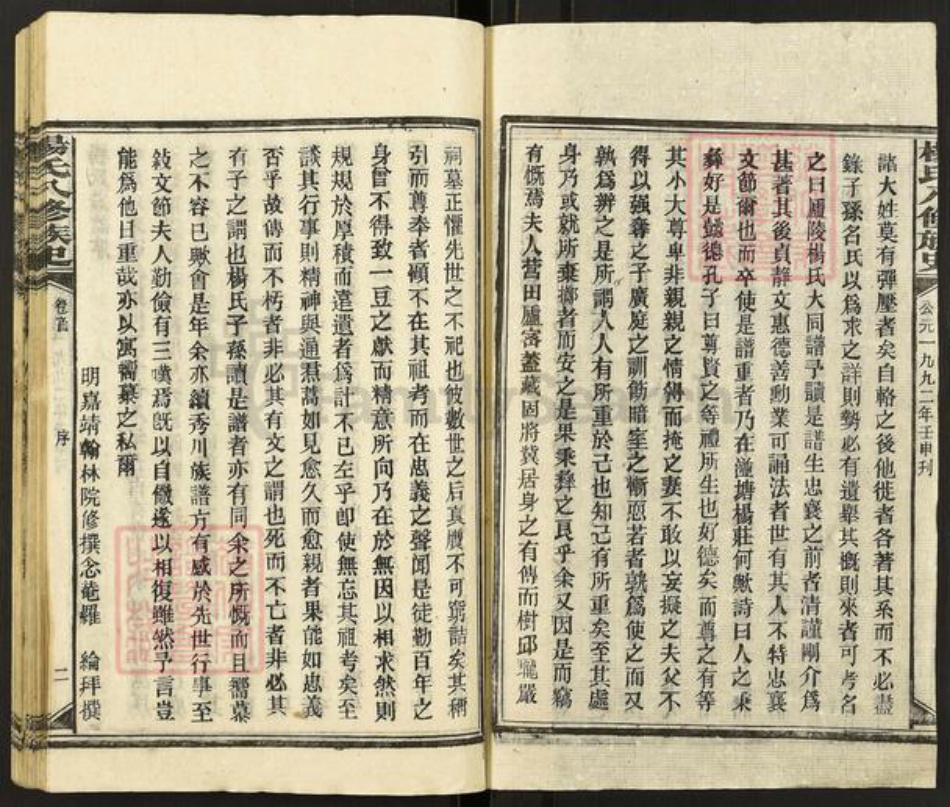 楊氏八修族史
公元一九九二年壬申刊
諸大姓莫有彈壓者矣自輅之後他徙者各著其系而不必盡
錄子孫名氏以爲求之詳則勢必有遺舉其概則來者可考名
之曰廬陵楊氏大同譜予讀是譜生忠襄之前者清謹剛介爲
甚著其後貞靜文惠德善勳業可誦法者世有其人不特忠襄
文節爾也而卒使是譜重者乃在湴塘楊莊何歟詩曰人之秉
彝好是懿德孔子曰尊賢之等禮所生也好德矣而尊之有等
其小大尊卑非親親之情得而掩之妻不敢以妄擬之夫父不
得以强奪之子廣庭之訓勛暗室之慚恧若者孰爲使之而又
孰爲辨之是所謂人人有所重於己也知己有所重矣至其處
身乃或就所棄擲者而安之是果秉彝之良乎余又因是而竊
有慨焉夫人营田廬審蓋藏固將冀居身之有傳而樹邱壠嚴
祠墓正懼先世之不祀也彼數世之后真贋不可窮詰矣其稱
引而尊奉者顧不在其祖考而在忠義之聲聞是徒勤百年之
身曾不得致一豆之獻而精意所向乃在於無因以相求然則
規規於厚積而遺遺者爲計不已左乎卽使無忘其祖考矣至
談其行事則精神與通焄蒿如見愈久而愈親者果能如忠義
否乎故傳而不朽者非必其有文之謂也死而不亡者非必其
有子之謂也楊氏子孫讀是譜者亦有同余之所慨而且嚮慕
之不容已歟會是年余亦續秀川族譜方有感於先世行事至
敍文節夫人勤儉有三嘆焉既以自儆遂以相復雖然予言豈
能爲他日重哉亦以寓嚮慕之私爾
明嘉靖翰林院修撰念菴羅 綸拜撰
楊氏八修族史
卷首
序
二